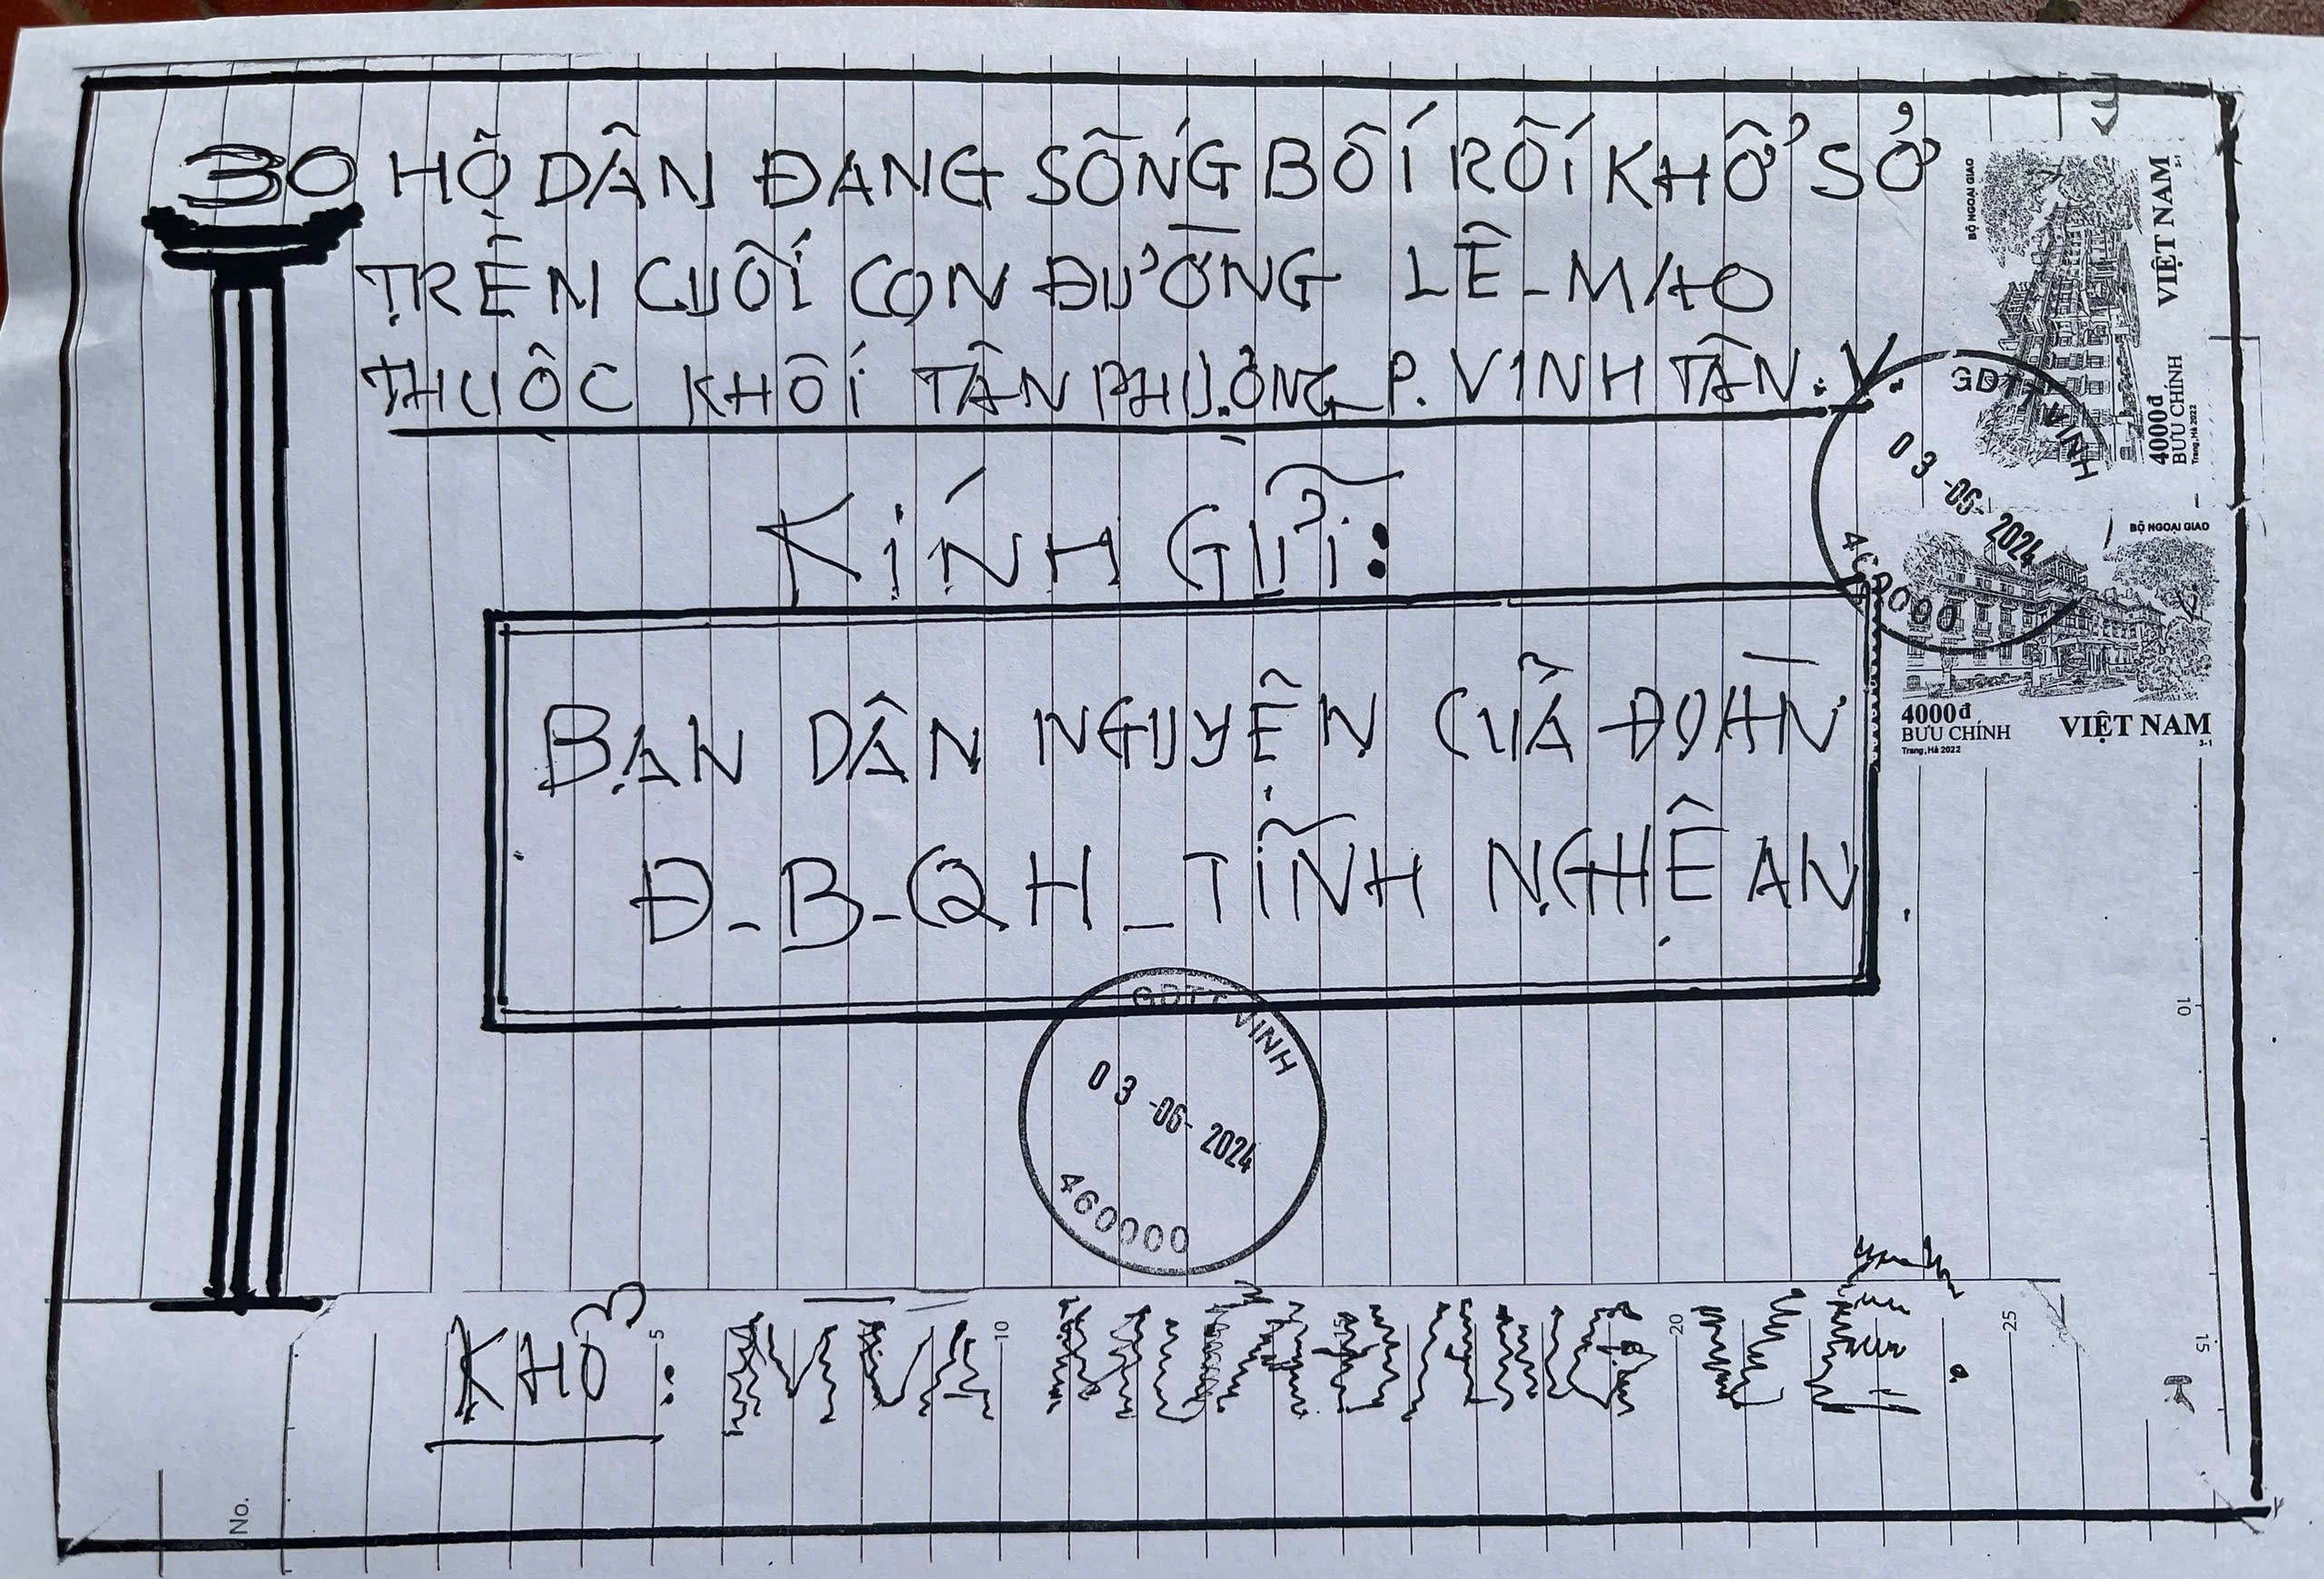 30 HỘ DÂN ĐANG SỐNG BỐI RỐI KHỔ SỞ
TRÊN CUỐI CON ĐƯỜNG LÊ-MAO
THUỘC KHỐI TÂN PHƯỢNG P. VINH TÂN. V.
BỘ NGOẠI GIAO
VIỆT NAM
3-1
4000đ
BƯU CHÍNH
Trang, Hà 2022
GDTT VINH
03-06-2024
460000
KÍNH GỬI:
BỘ NGOẠI GIAO
4000đ
BƯU CHÍNH
Trang, Hà 2022
VIỆT NAM
3-1
BAN DÂN NGUYỆN CỦA ĐOÀN
Đ-B-QH-TỈNH NGHỆ AN
GDTT VINH
03-06-2024
460000
KHỔ: MÙA MƯA ĐANG VỀ.
5 10 15 20 25
10
15
No.